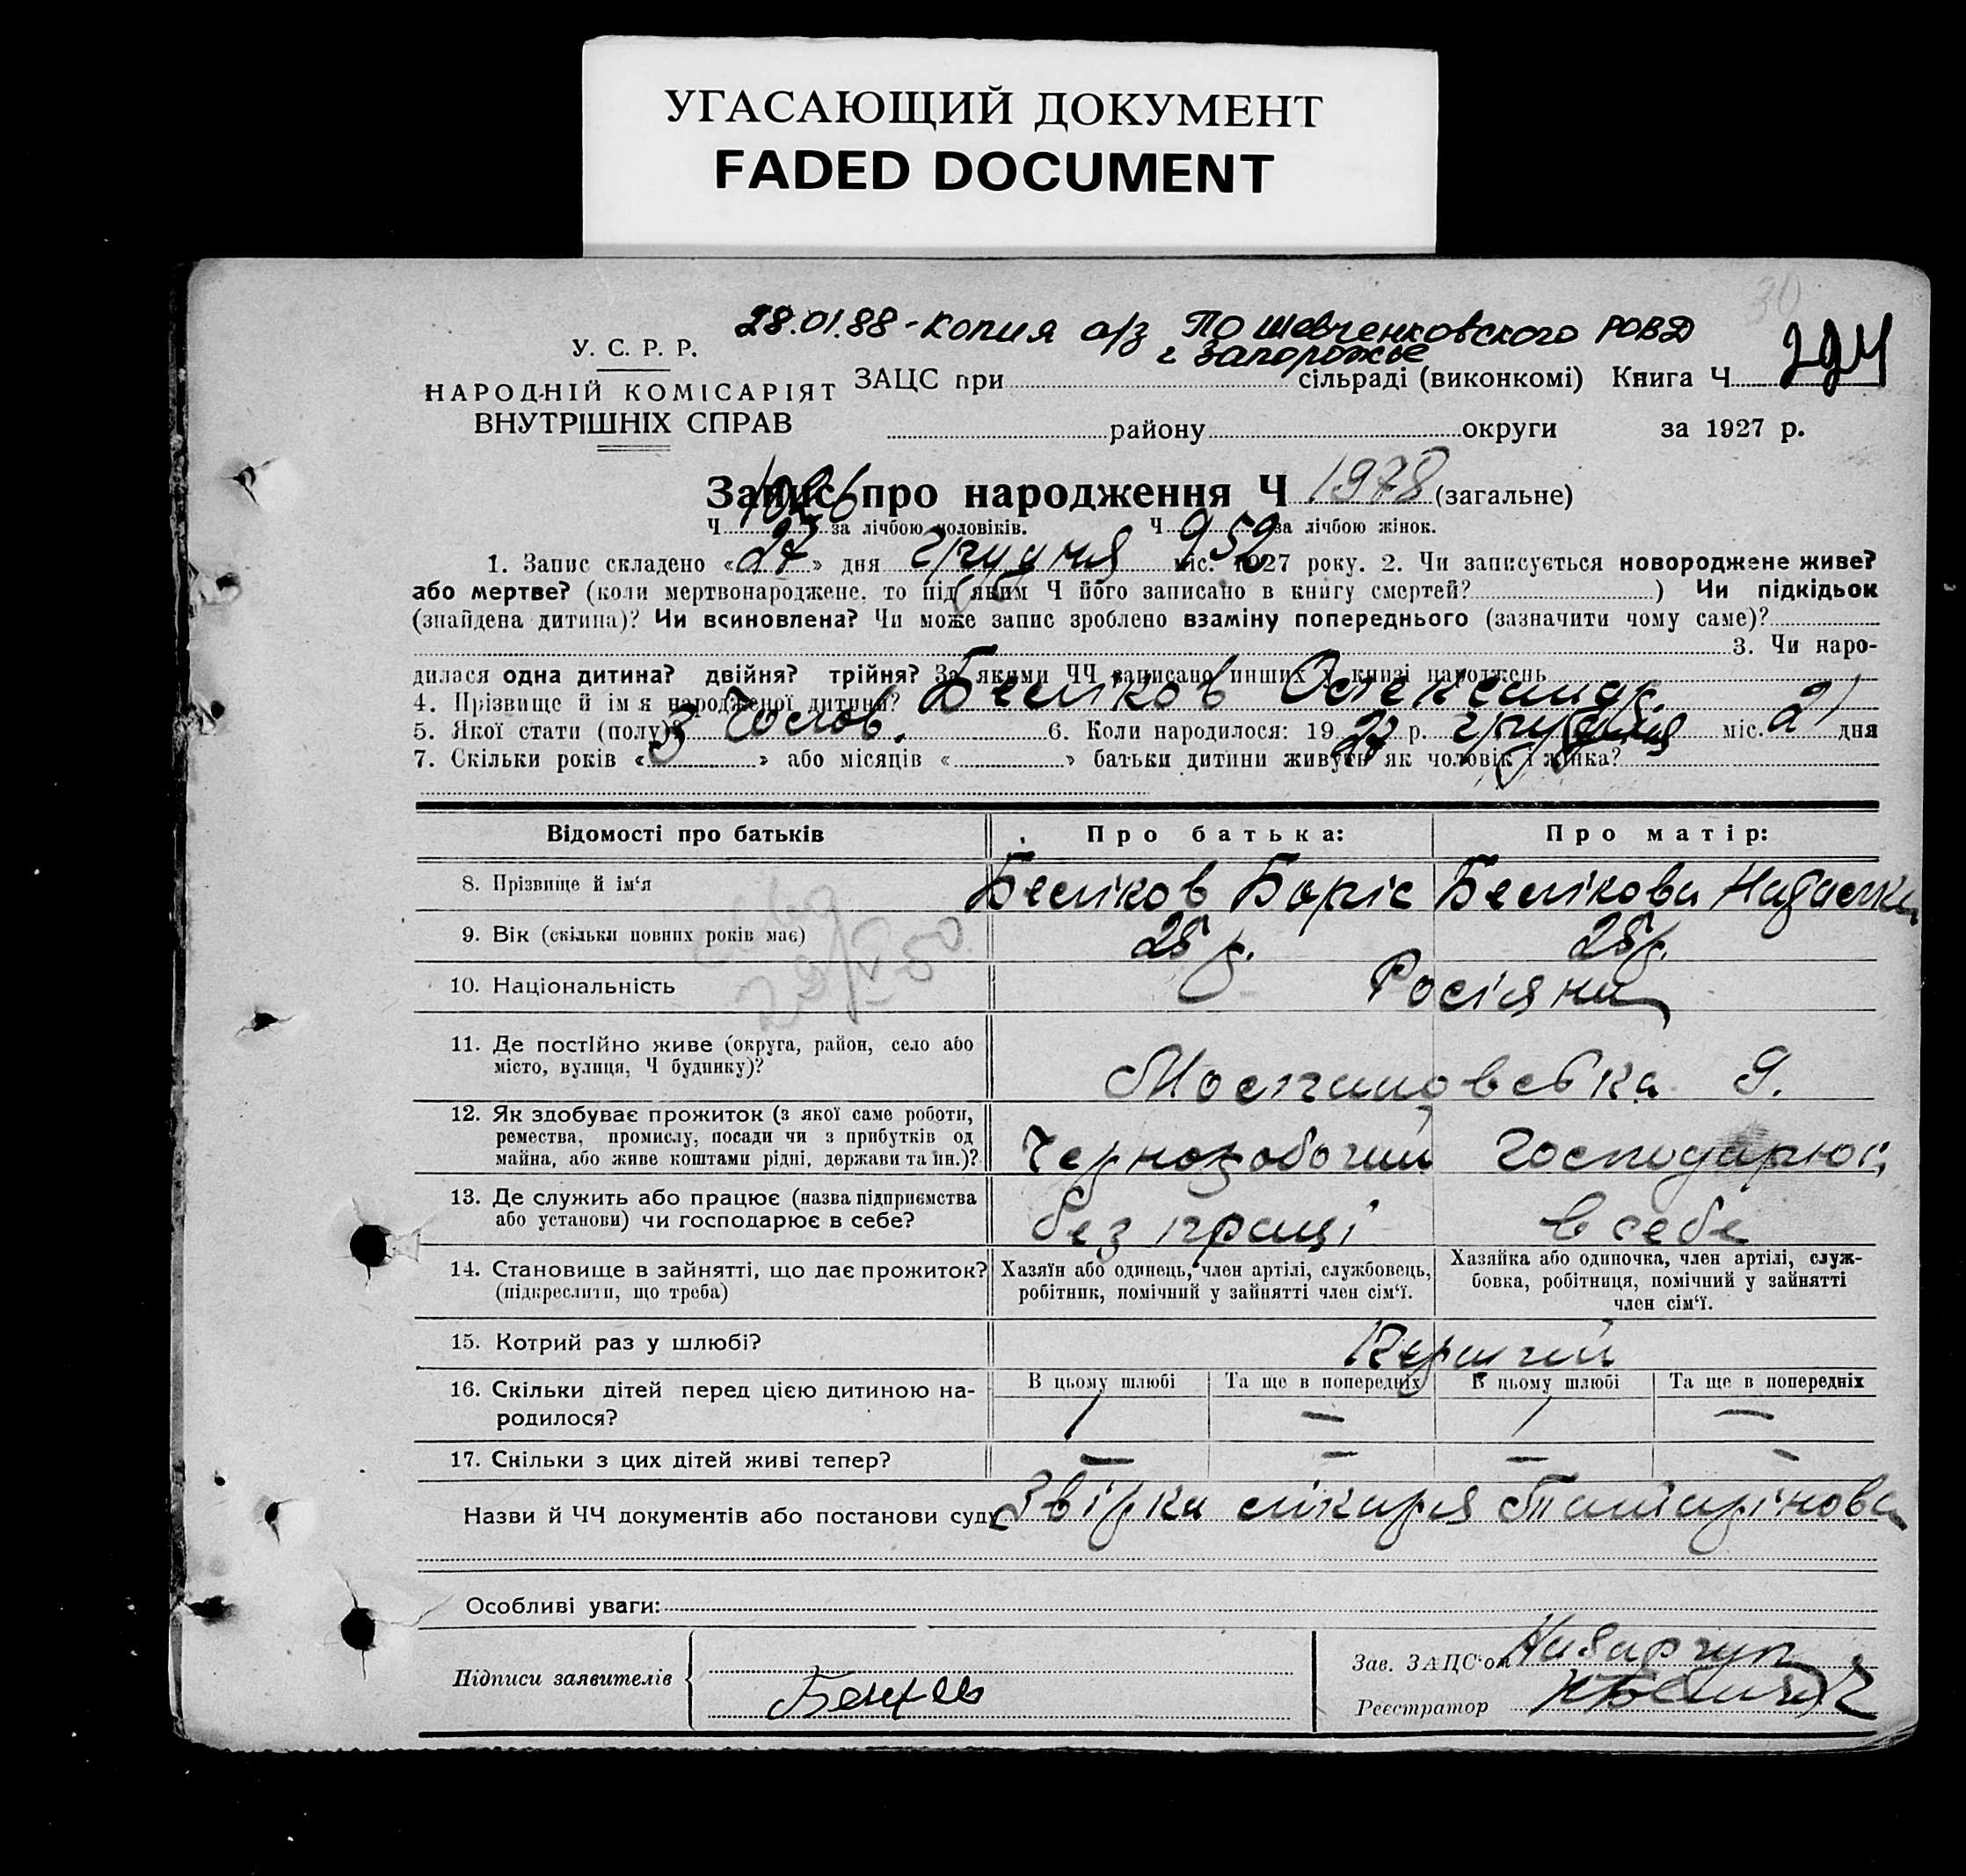 УГАСАЮЩИЙ ДОКУМЕНТ
FADED DOCUMENT
30
28.01.88 - копия а/з ПО Шевченковского РОВД
г Запорожье
У. С. Р. Р.
НАРОДНІЙ КОМІСАРІЯТ
ВНУТРІШНІХ СПРАВ
ЗАЦС при сільраді (виконкомі) Книга Ч
району округи за 1927 р.
Запис про народження Ч 1978 (загальне)
Ч 1026 за лічбою чоловіків. Ч 952 за лічбою жінок.
1. Запис складено «27» дня грудня міс. 1927 року. 2. Чи записується новороджене живе?
або мертве? (коли мертвонароджене, то під яким Ч його записано в книгу смертей? ) Чи підкідьок
(знайдена дитина)? Чи всиновлена? Чи може запис зроблено взаміну попереднього (зазначити чому саме)?
3. Чи наро-
дилася одна дитина? двійня? трійня? За якими ЧЧ записано инших у книзі народжень
4. Прізвище й ім я народженої дитини? Беліков Олександр.
5. Якої стати (полу)? Чолов. 6. Коли народилося: 1927 р. грудня міс. 21 дня
7. Скільки років «3» або місяців « » батьки дитини живуть як чоловік і жінка?
Відомості про батьків Про батька: Про матір:
8. Прізвище й ім‘я Беліков Боріс Белікова Наталка
9. Вік (скільки повних років має) 25 р. 25 р.
10. Національність Росіяни
11. Де постійно живе (округа, район, село або
місто, вулиця, Ч будинку)? 9.
12. Як здобуває прожиток (з якої саме роботи,
ремества, промислу, посади чи з прибутків од
майна, або живе коштами рідні, держави та ин.)? Чорноробочий Господарює
13. Де служить або працює (назва підприємства
або установи) чи господарює в себе? без праці в себе
14. Становище в зайнятті, що дає прожиток?
(підкреслити, що треба)
Хазяїн або одинець, член артілі, службовець,
робітник, помічний у зайнятті член сім‘ї.
Хазяйка або одиночка, член артілі, служ-
бовка, робітниця, помічний у зайнятті
член сім‘ї.
15. Котрий раз у шлюбі? Перший
16. Скільки дітей перед цією дитиною на-
родилося?
В цьому шлюбі Та ще в попередніх В цьому шлюбі Та ще в попередніх
1 — 1 —
17. Скільки з цих дітей живі тепер? — — — —
Назви й ЧЧ документів або постанови суду Звірка лікаря Татарінова
Особливі уваги:
Підписи заявителів
Зав. ЗАЦС‘ом
Реєстратор